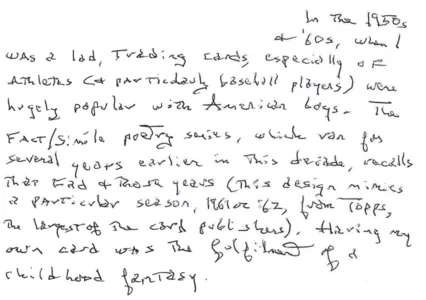 In the 1950s
& '60s, when I
was a lad, trading cards, especially of
athletes (& particularly baseball players) were
hugely popular with American boys. The
Fact/Simile poetry series, which ran for
several years earlier in this decade, recalls
that fad & those years (this design mimics
a particular season, 1961 or '62, from Topps,
the largest of the card publishers). Having my
own card was the fulfilment of a
childhood fantasy.